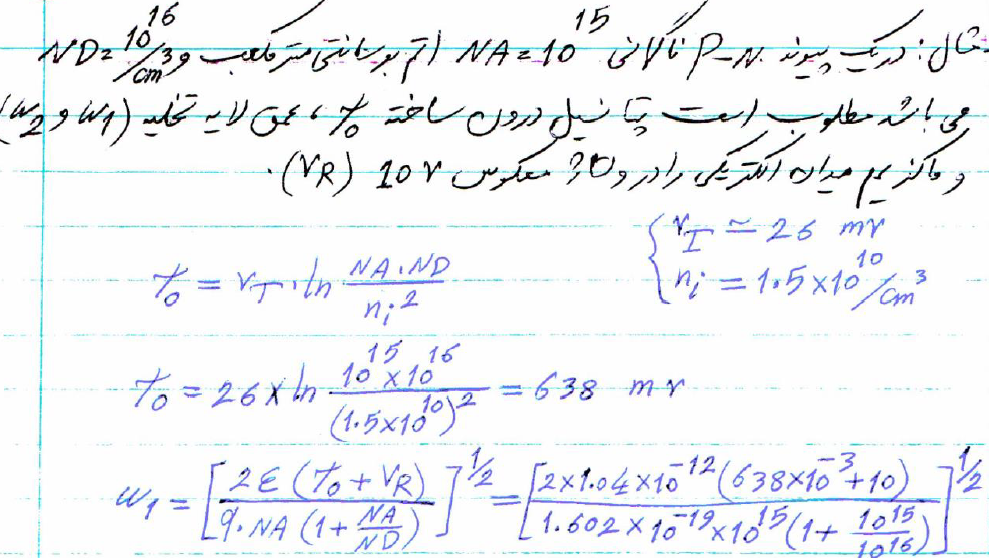 مثال: در یک پیوند P-N ناگهانی NA = 10^15 اتم بر سانتی متر مکعب و ND = 10^16/cm^3
می باشد مطلوب است پتانسیل درون ساخته ψ0، عمق لایه تخلیه (W1 و W2)
و ماکزیمم میدان الکتریکی را در ولتاژ معکوس 10V (VR).
{ VT ≃ 26 mV
ni = 1.5×10^10/cm^3
ψ0 = VT · ln NA·ND / ni^2
ψ0 = 26 × ln 10^15×10^16 / (1.5×10^10)^2 = 638 mV
W1 = [2ε (ψ0 + VR) / q·NA (1 + NA/ND)]^1/2 = [2×1.04×10^-12 (638×10^-3 + 10) / 1.602×10^-19×10^15 (1 + 10^15/10^16)]^1/2